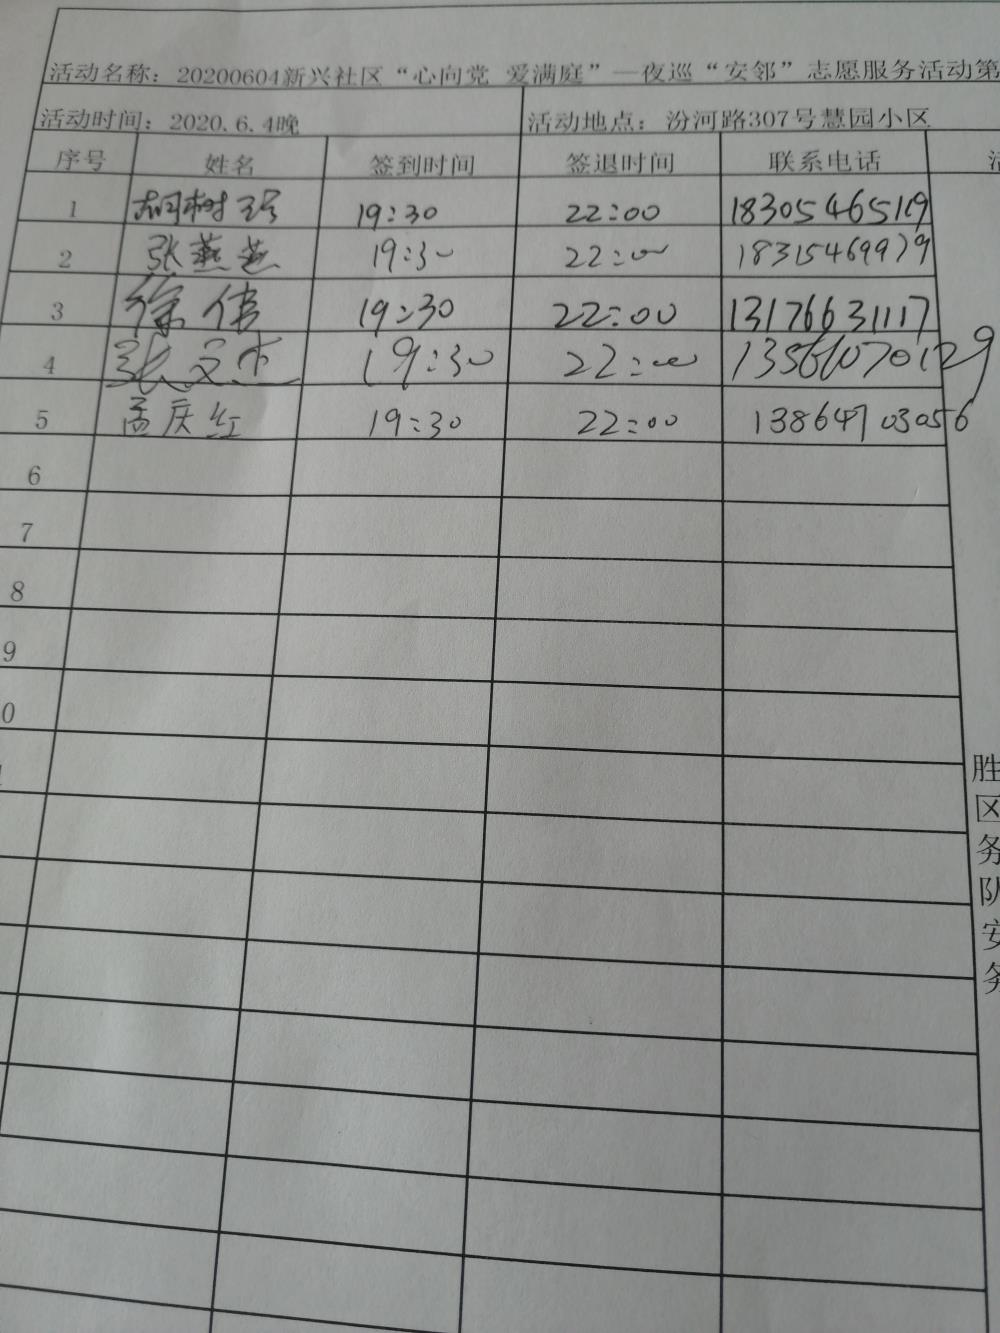 活动名称：20200604新兴社区“心向党 爱满庭”—夜巡“安邻”志愿服务活动第
活动时间：2020.6.4晚 活动地点：汾河路307号慧园小区
序号 姓名 签到时间 签退时间 联系电话 活
1 19:30 22:00 18305465119
2 张燕燕 19:30 22:00 18315469979
3 徐伟 19:30 22:00 13176631117
4 张文杰 19:30 22:00
5 孟庆红 19:30 22:00 13864703056
6
7
8
9
0
胜
区
务
队
安
务